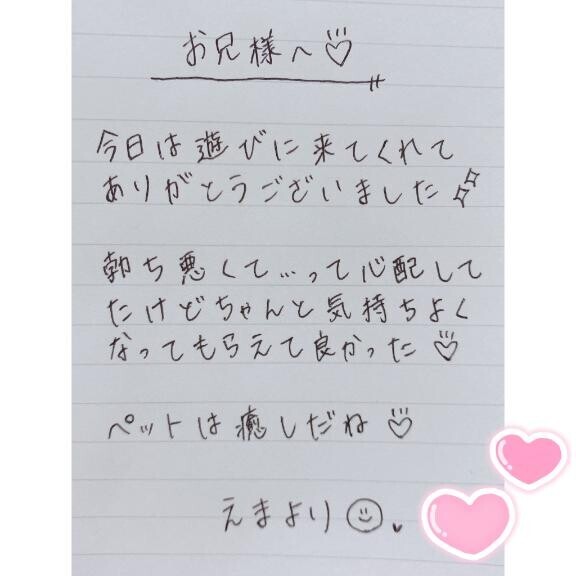 お兄様へ♡
今日は遊びに来てくれて
ありがとうございました✨
勃ち悪くて…って心配して
たけどちゃんと気持ちよく
なってもらえて良かった♡
ペットは癒しだね♡
えまより☺